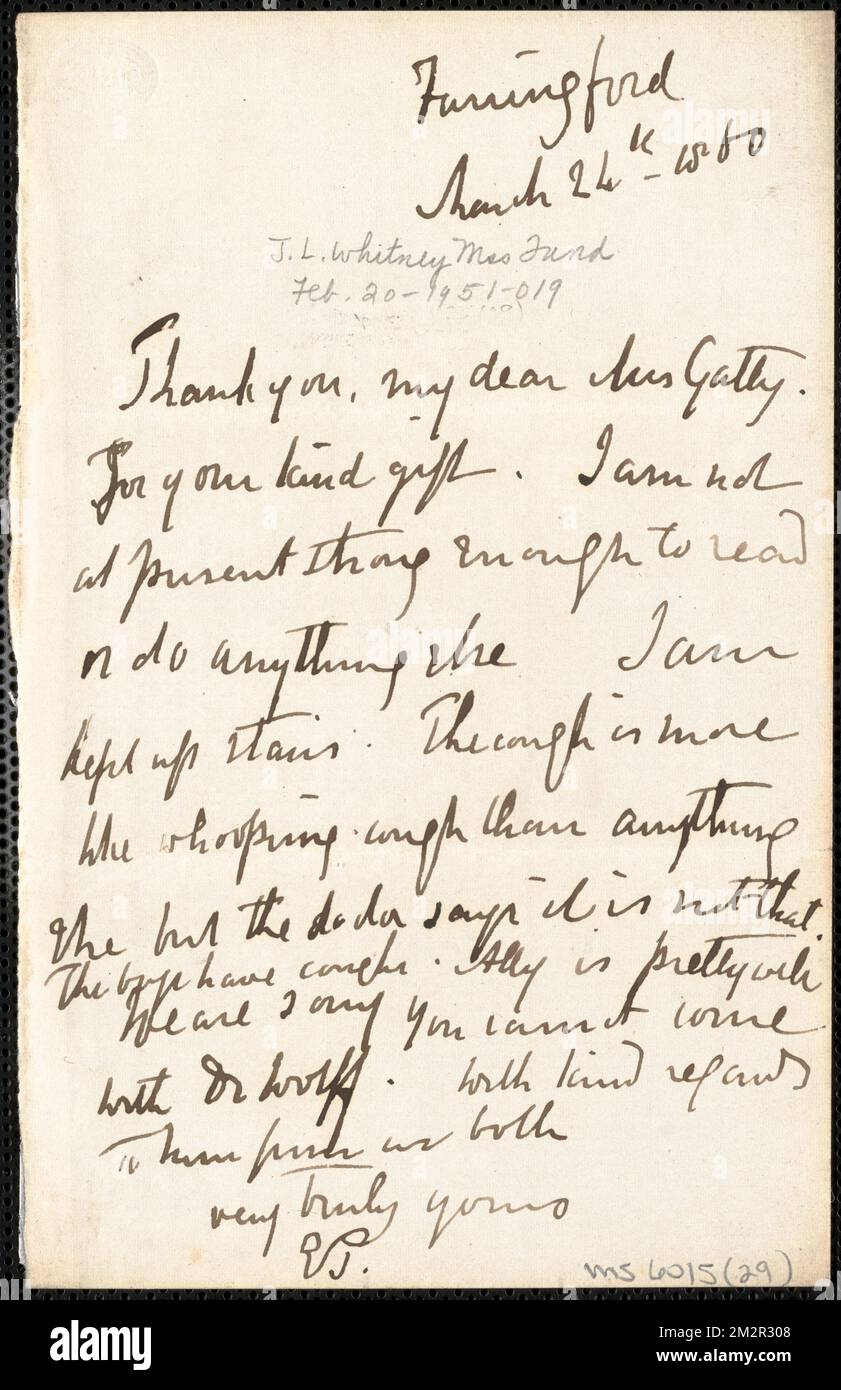 Farringford
March 24th - 1860
J. L. Whitney Mss Fund
Feb. 20-1951-019
Thank you, my dear Mrs Gatty.
For your kind gift. I am not
at present strong enough to read
or do anything else I am
kept up stairs. The cough is more
like whooping-cough than anything
else but the doctor says it is not that.
The boys have coughs. Ally is pretty well
We are sorry you cannot come
with Dr Wolff. With kind regards
to him from us both
very truly yours
ET.
MS 6015(29)
alamy
Image ID: 2M2R308
www.alamy.com